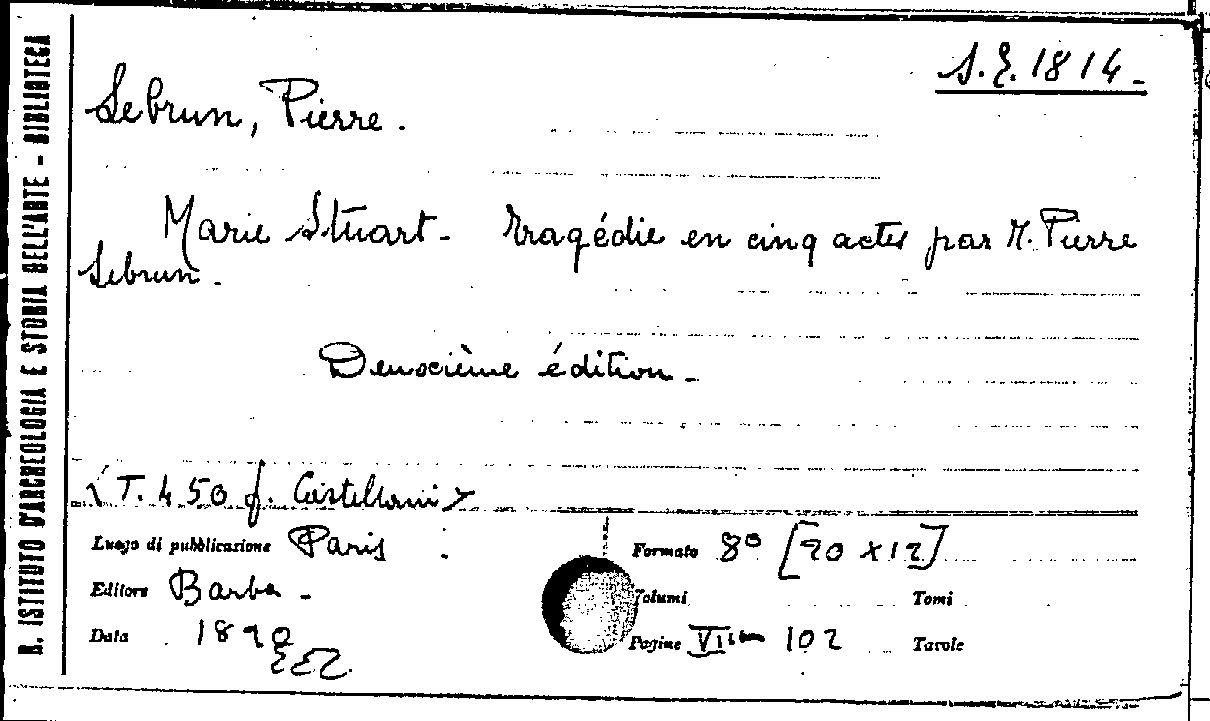 R. ISTITUTO D'ARCHEOLOGIA E STORIA DELL'ARTE - BIBLIOTECA
S.E. 1814.
Lebrun, Pierre.
Marie Stuart - Tragédie en cinq actes par M. Pierre
Lebrun.
Deuxième édition -
< T. 450 f. Castellani >
Luogo di pubblicazione Paris
Formato 8º [20 x 12]
Editore Barba -
Volumi
Tomi
Data 1820
Pagine VI 102
Tavole